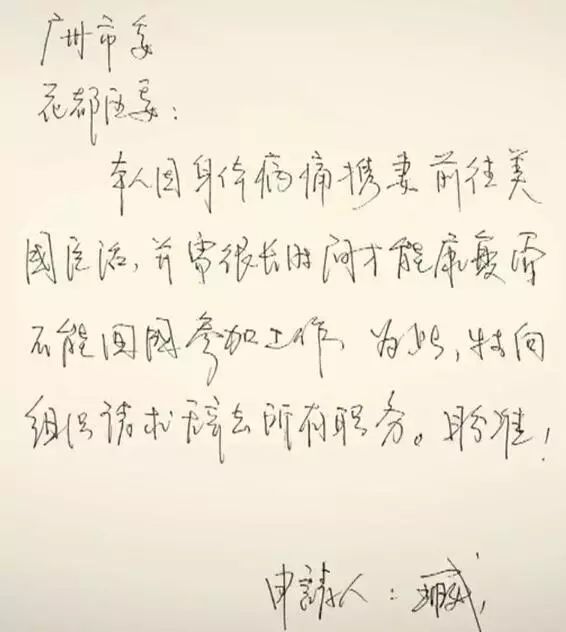 广州市委
花都区委：
本人因身体病痛携妻前往美
國医治，并需很长时间才能康复，暂
不能回國参加工作，为此，特向
组织请求辞去所有职务。盼准！
申請人：